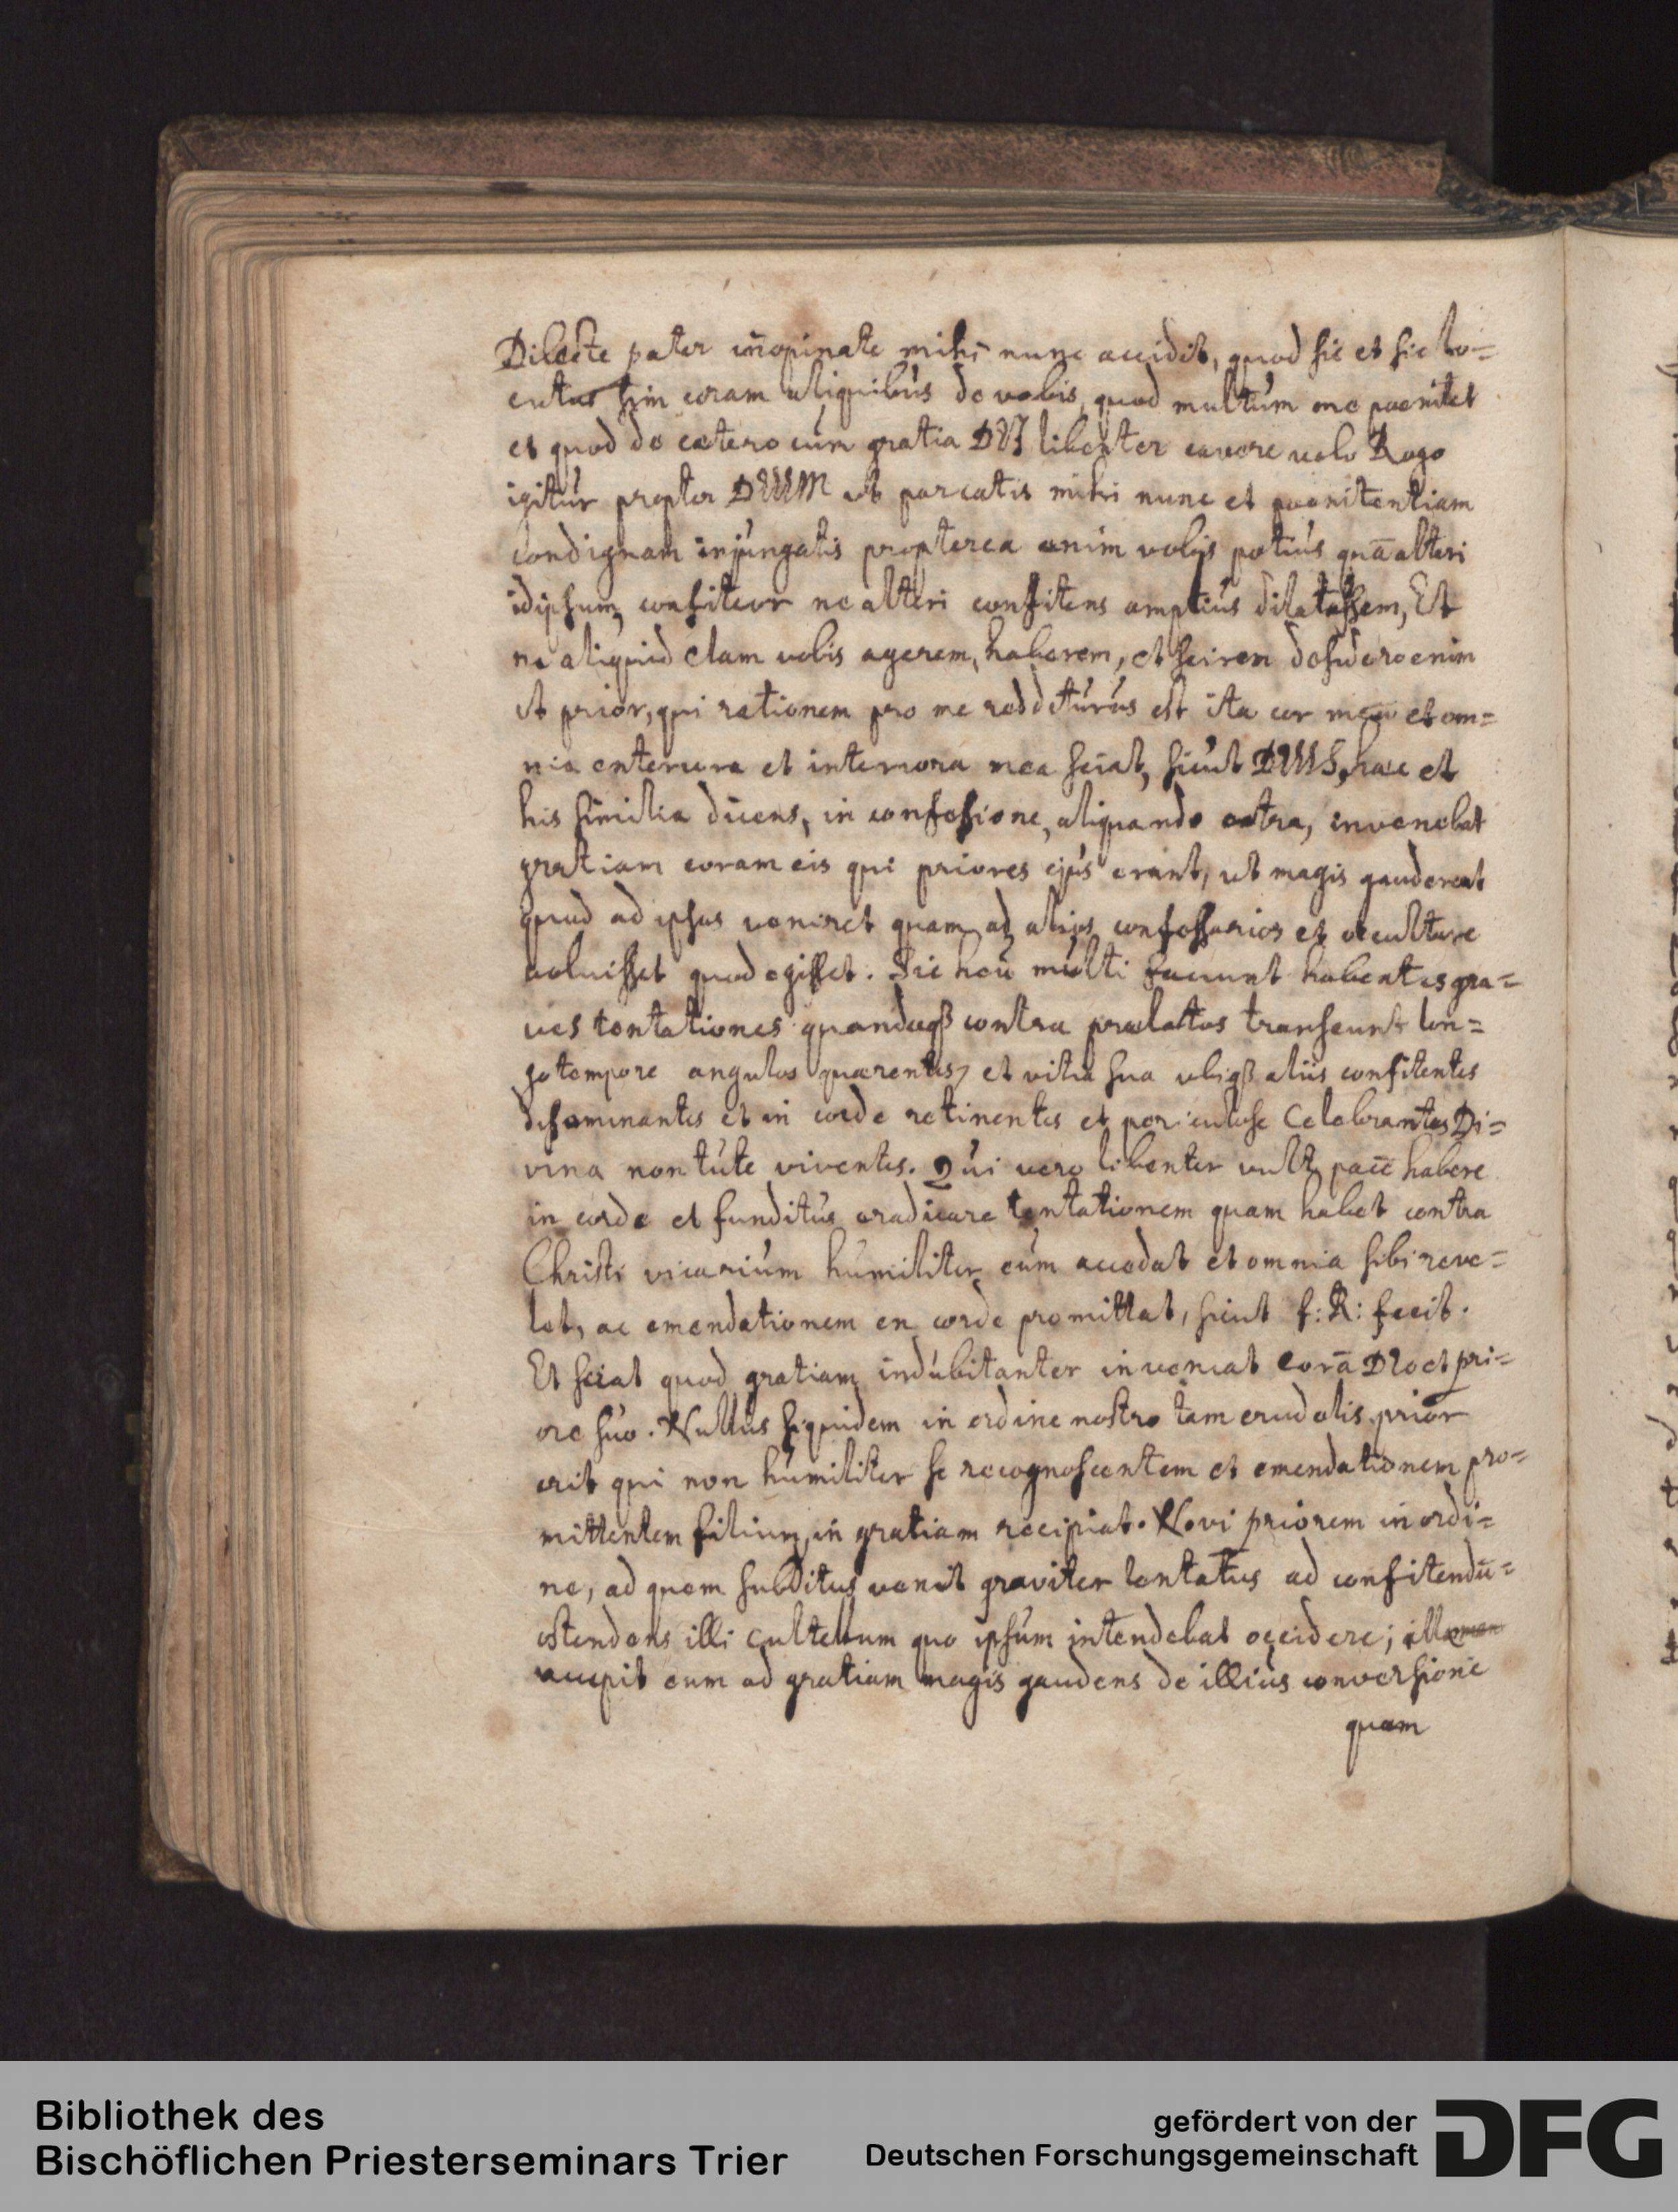 Dilecte pater inopinate mihi nunc accidit, quod sic et sic lo=
cutus sim coram aliquibus de vobis, quod multum me poenitet
et quod de caetero cum gratia DEI libenter cavere volo Rogo
igitur propter DEUM ut parcatis mihi nunc et poenitentiam
condignam injungatis propterea enim vobis potius quā alteri
idipsum, confiteor ne alteri confitens amplius dilatassem, Et
ne aliquid clam vobis agerem, haberem, et scirem desidero enim
ut prior, qui rationem pro me redditurus est ita cor meū et om=
nia exteriora et interiora mea sciat, sicut DEUS, haec et
his similia dicens, in confessione, aliquando extra, inveniebat
gratiam coram eis qui priores ejus erant, ut magis gauderent
quod ad ipsos veniret quam ad alios confessarios et occultare
voluisset quod egisset. Sic heu multi faciunt habentes gra=
ves tentationes quandoqß contra praelatos transeunt lon=
go tempore angulos quaerentes, et vitia sua ubiqß aliis confitentes
diseminantes et in corde retinentes et periculose Celebrantes Di=
vina non tute viventes. Qui vero libenter vult pacē habere
in corde et funditus eradicare tentationem quam habet contra
Christi vicarium humiliter eum accedat et omnia sibi reve=
let, ac emendationem en corde promittat, sicut f: R: fecit.
Et sciat quod gratiam indubitanter inveniat corā DEo et pri=
ore suo. Nullus siquidem in ordine nostro tam crudelis prior
erit qui non humiliter se recognoscentem et emendationem pro=
mittentem filium, in gratiam recipiat. Novi priorem in ordi=
ne, ad quem subditus venit graviter tentatus ad confitendū=
ostendens illi cultellum quo ipsum intendebat occidere; ille
accepit eum ad gratiam magis gaudens de illius conversione
quam
Bibliothek des
Bischöflichen Priesterseminars Trier
gefördert von der
Deutschen Forschungsgemeinschaft
DFG